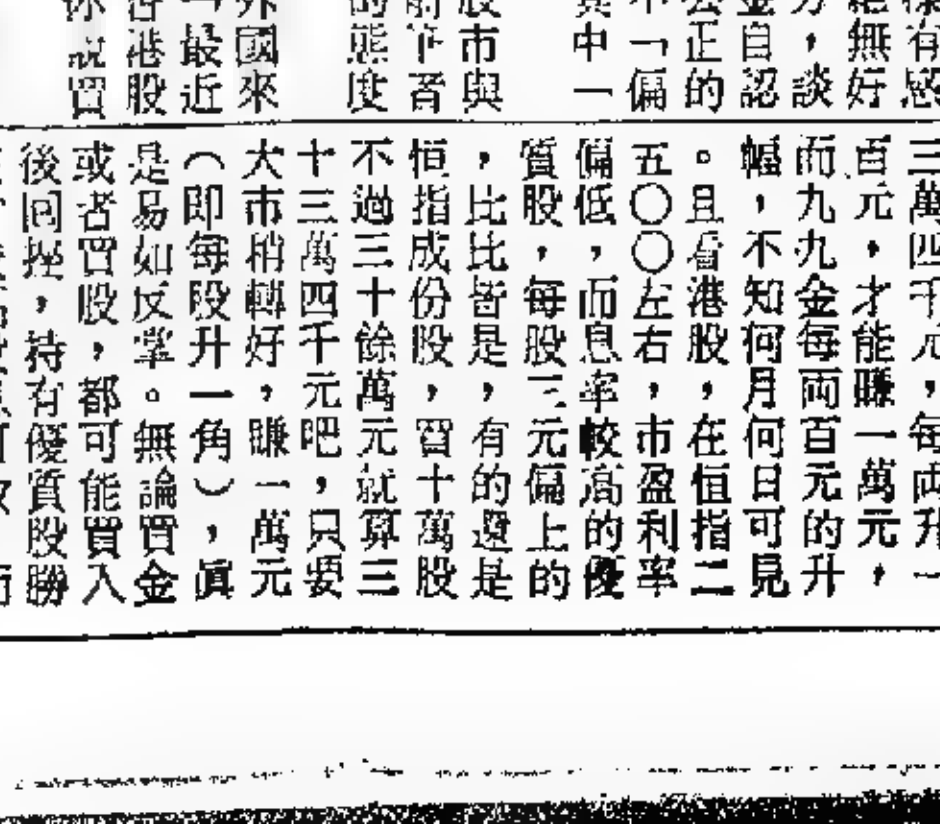 有感
無好
，談
自認
正的
「偏
中一
市與
作者
態度
國來
最近
港股
說買
三萬四千元，每両升一
百元，才能賺一萬元，
而九九金每両百元的升
幅，不知何月何日可見
。且看港股，在恒指二
五〇〇左右，市盈利率
偏低，而息率較高的優
質股，每股三元偏上的
，比比皆是，有的還是
恒指成份股，買十萬股
不過三十餘萬元就算三
十三萬四千元吧，只要
大市稍轉好，賺一萬元
（即每股升一角），眞
是易如反掌。無論買金
或者買股，都可能買入
後回挫，持有優質股勝